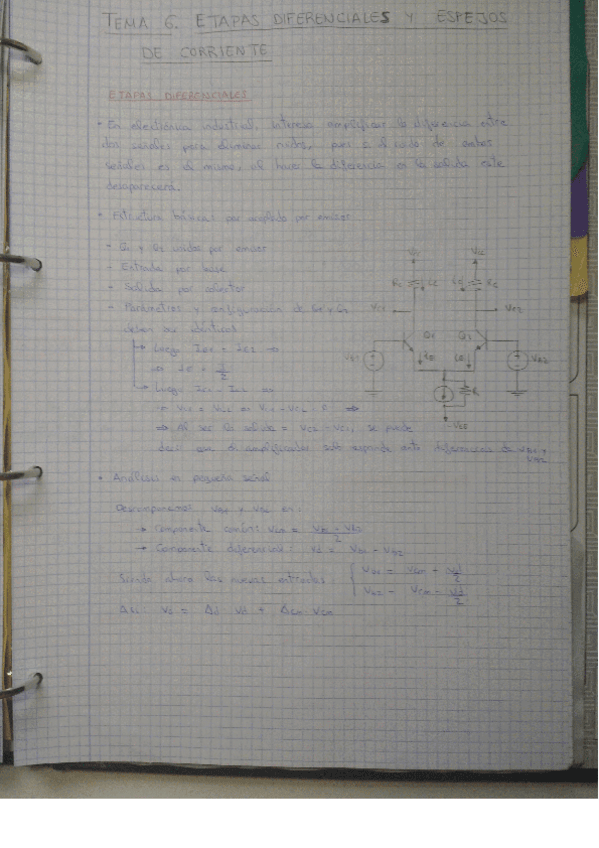 TEMA 6. ETAPAS DIFERENCIALES Y ESPEJOS
DE CORRIENTE
ETAPAS DIFERENCIALES
• En electrónica industrial, interesa amplificar la diferencia entre
dos señales para eliminar ruidos, pues si el ruido de ambas
señales es el mismo, al hacer la diferencia a la salida este
desaparecerá.
• Estructura básica: par acoplado por emisor
- Q1 y Q2 unidos por emisor
- Entrada por base
- Salida por colector
- Parámetros y configuración de Q1 y Q2
deben ser idénticos
→ Luego IE1 = IE2 ⇒
⇒ IE = I/2
→ Luego IC1 = IC2 ⇒
⇒ VC1 = VC2 ⇒ VC1 - VC2 = 0 ⇒
⇒ Al ser la salida = VC2 - VC1, se puede
decir que el amplificador solo responde ante diferencias de VB1 y VB2
VCC VCC
RC IC IC RC
VC1 VC2
Q1 Q2
VB1 IE IE VB2
I R
-VEE
• Análisis en pequeña señal
Descomponemos Vb1 y Vb2 en:
→ Componente común: Vcm = Vb1 - Vb2 / 2
→ Componente diferencial: Vd = Vb1 - Vb2
Siendo ahora las nuevas entradas: { Vb1 = Vcm + Vd/2
Vb2 = Vcm - Vd/2
Así: Vo = Ad · Vd + Acm Vcm